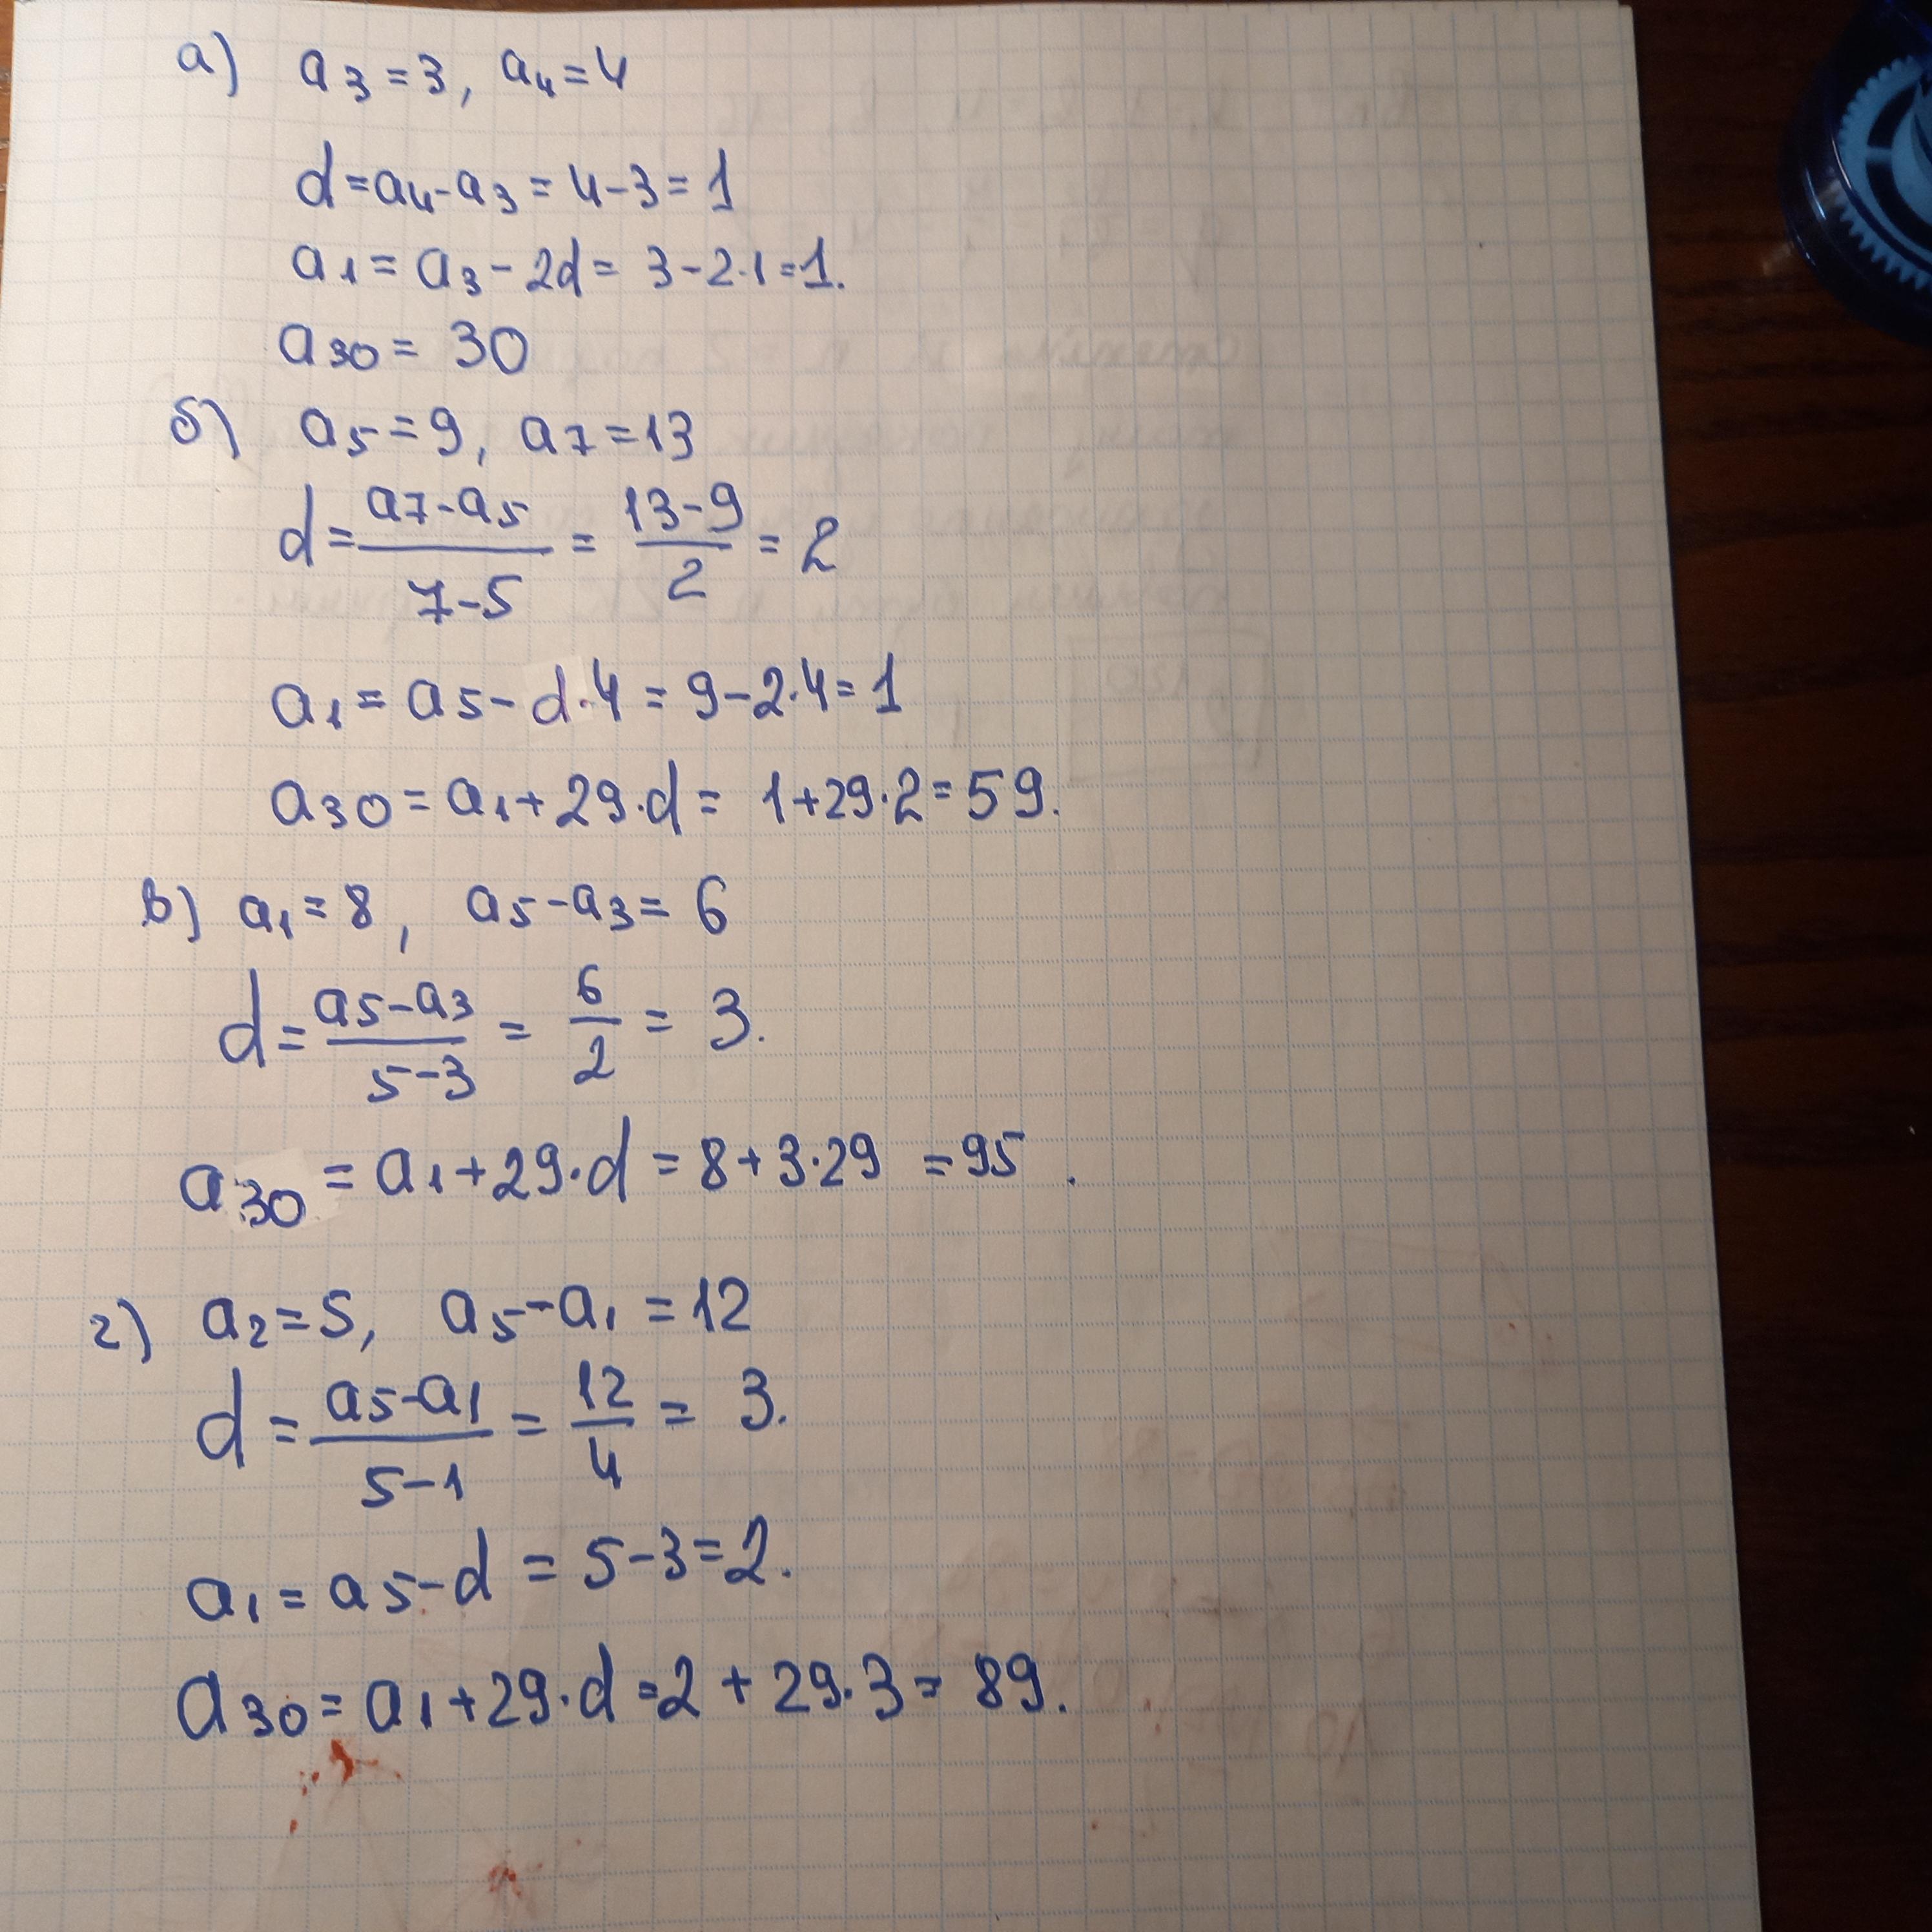 а) a₃ = 3, a₄ = 4
d = a₄ - a₃ = 4 - 3 = 1
a₁ = a₃ - 2d = 3 - 2·1 = 1.
a₃₀ = 30
б) a₅ = 9, a₇ = 13
d = (a₇ - a₅)/(7 - 5) = (13 - 9)/2 = 2
a₁ = a₅ - d·4 = 9 - 2·4 = 1
a₃₀ = a₁ + 29·d = 1 + 29·2 = 59.
в) a₁ = 8, a₅ - a₃ = 6
d = (a₅ - a₃)/(5 - 3) = 6/2 = 3.
a₃₀ = a₁ + 29·d = 8 + 3·29 = 95.
г) a₂ = 5, a₅ - a₁ = 12
d = (a₅ - a₁)/(5 - 1) = 12/4 = 3.
a₁ = a₅ - d = 5 - 3 = 2.
a₃₀ = a₁ + 29·d = 2 + 29·3 = 89.